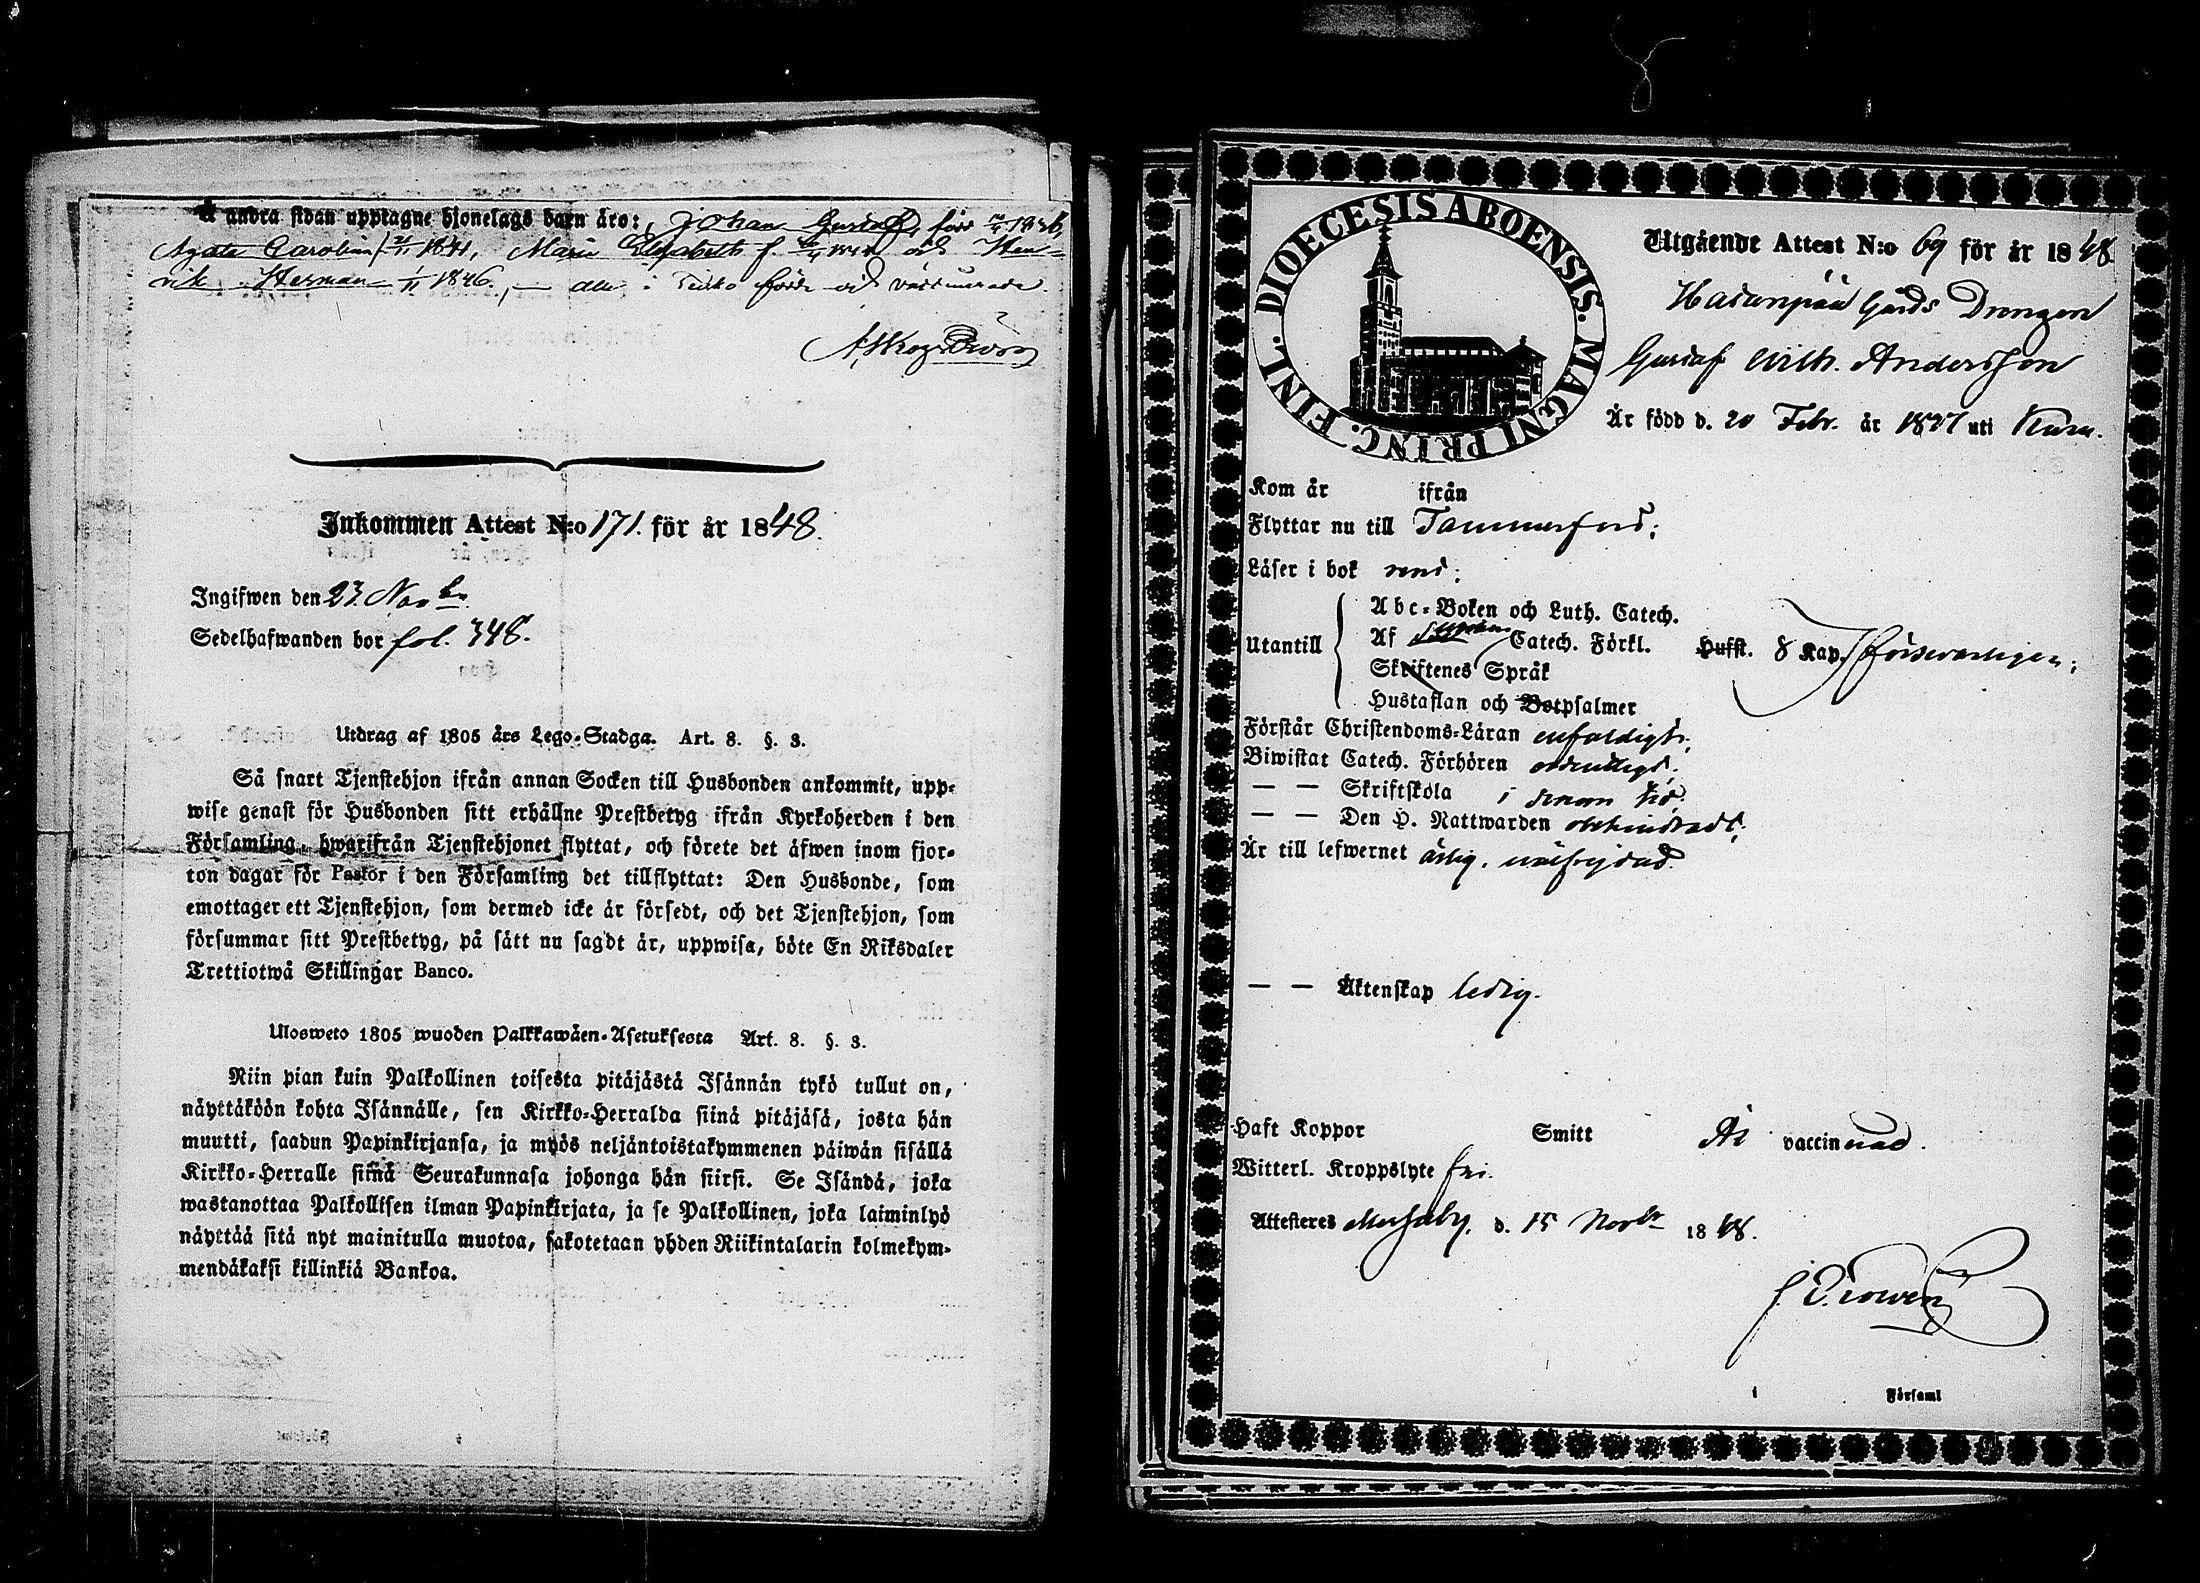 Å andra sidan upptagne hjonelags barn äro: Johan Gustaf, född
Agata Carolina 1841, Maria Elisabeth f. och Hen-
rik Herman 1/11 1846, — alla i födde och vaccinerade.
Inkommen Attest N:o 171. för år 1848.
Ingifwen den 23. Novbr.
Sedelhafwanden bor fol. 348.
Utdrag af 1805 års Lego-Stadga. Art. 8. §. 3.
Så snart Tjenstehjon ifrån annan Socken till Husbonden ankommit, upp-
wise genast för Husbonden sitt erhållne Prestbetyg ifrån Kyrkoherden i den
Församling, hwarifrån Tjenstehjonet flyttat, och förete det äfwen inom fjor-
ton dagar för Pastor i den Församling det tillflyttat: Den Husbonde, som
emottager ett Tjenstehjon, som dermed icke är försedt, och det Tjenstehjon, som
försummar sitt Prestbetyg, på sätt nu sagdt är, uppwisa, böte En Riksdaler
Trettiotwå Skillingar Banco.
Ulosweto 1805 wuoden Palkkawäen-Asetuksesta Art. 8. §. 3.
Niin pian kuin Palkollinen toisesta pitäjästä Isännän tykö tullut on,
näyttäköön kohta Isännälle, sen Kirkko-Herralda siinä pitäjäsä, josta hän
muutti, saadun Papinkirjansa, ja myös neljäntoistakymmenen päiwän sisällä
Kirkko-Herralle siinä Seurakunnasa johonga hän siirsi. Se Isändä, joka
wastanottaa Palkollisen ilman Papinkirjata, ja se Palkollinen, joka laiminlyö
näyttää sitä nyt mainitulla muotoa, sakotetaan yhden Riikintalarin kolmekym-
mendäkaksi killinkiä Bankoa.
DIOECESIS ABOENSIS. MAGNI PRINC. FINL.
Utgående Attest N:o 69 för år 1848
Gårds Drengen
Gustaf Wilh. Andersson
Är född d. 20 Febr. år 1827 uti
Kom år ifrån
Flyttar nu till Tammerfors;
Läser i bok rent;
Utantill
Abc-Boken och Luth. Catech.
Af Catech. Förkl. Hufst. 8 Kap. försvarligen;
Skriftenes Språk
Hustaflan och Botpsalmer
Förstår Christendoms-Läran enfaldigt;
Biwistat Catech. Förhören ordentligt;
— — Skriftskola i senare tid;
— — Den H. Nattwarden obehindradt;
Är till lefwernet ärlig, välfrejdad.
— — Äktenskap ledig.
Haft Koppor Smitt Är vaccinerad.
Witterl. Kroppslyte fri.
Attesteres d. 15 Novbr 1848.
Församl